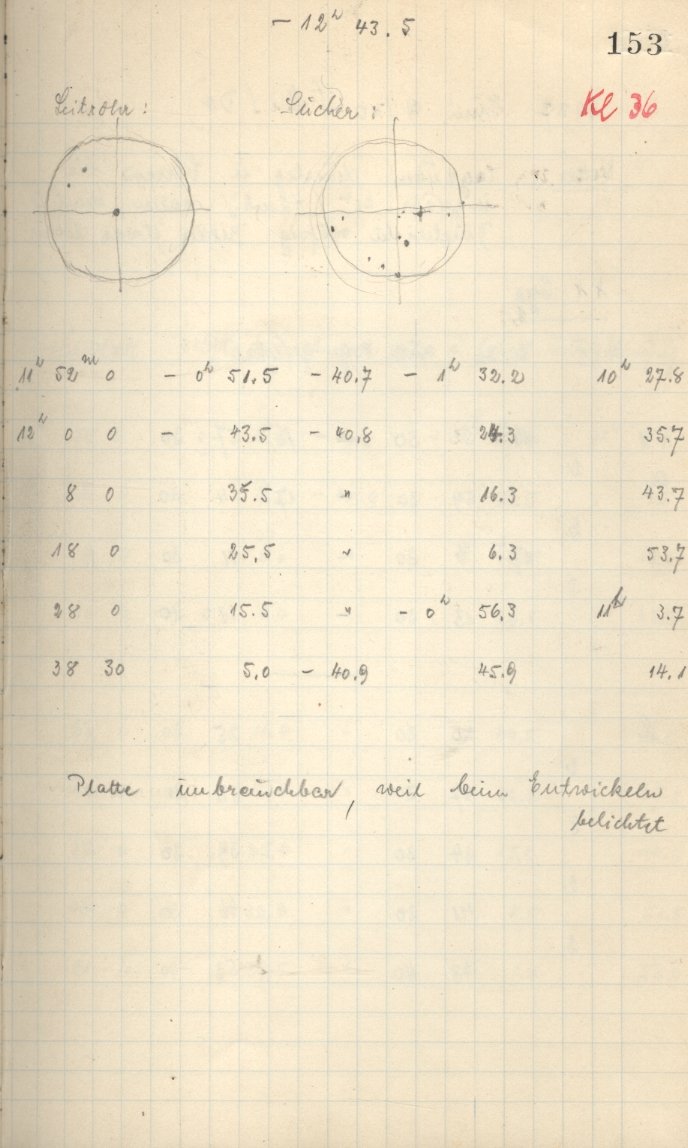 - 12ʰ 43.5
153
Leitrohr: Sucher: Kl 36
11ʰ 52ᵐ 0 - 0ʰ 51.5 - 40.7 - 1ʰ 32.2 10ʰ 27.8
12ʰ 0 0 - 43.5 - 40.8 24.3 35.7
8 0 35.5 " 16.3 43.7
18 0 25.5 " 6.3 53.7
28 0 15.5 " - 0ʰ 56.3 11ʰ 3.7
38 30 5.0 - 40.9 45.9 14.1
Platte unbrauchbar, weil beim Entwickeln
belichtet